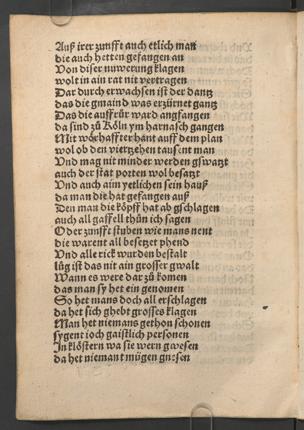 Auß irer zunfft auch etlich man
die auch hetten gefangen an
Von diser nuwerung klagen
wolt in ain rat nit vertragen
Dar durch erwachsen ist der dantz
das die gmaind was erzürnet gantz
Das die auffrür ward angfangen
da sind zů Köln ym harnasch gangen
Mit wörhaffter hant auff dem plan
wol ob den vierzehen tausent man
Vnd mag nit minder werden gswatzt
auch der stat porten wol besatzt
Vnd auch aim yetlichen sein hauß
da man die hat gefangen auß
Den man die köpff hat ab gschlagen
auch all gaffell thůn ich sagen
Oder zunfft stuben wie mans nent
die warent all besetzet phend
Vnd alle rick wurden bestalt
lůg ist das nit ain grosser gwalt
Wann es were dar zů komen
das man sy het ein genomen
So het mans doch all erschlagen
da het sich ghebt grosses klagen
Man het niemans gethon schonen
sygent ioch gaistlich personen
In klöstern wa sie wern gwesen
da het niemant mügen gnesen